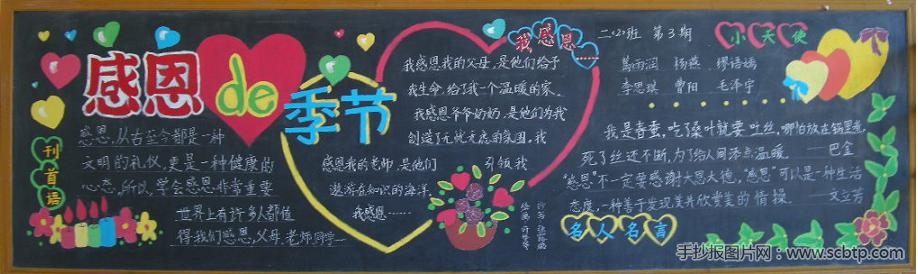 感恩de季节
刊首语
感恩,从古至今都是一种
文明的礼仪,更是一种健康的
心态,所以,学会感恩非常重要
世界上有许多人都值
得我们感恩,父母、老师、同学……
我感恩……
我感恩我的父母,是他们给予
我生命,给了我一个温暖的家。
我感恩爷爷奶奶,是他们为我
创造了无忧无虑的氛围,我
感恩我的老师,是他们 引领我
遨游在知识的海洋
我感恩……
二(2)班 第3期
小天使
葛雨润 杨燕 缪语嫣
李思琪 曹阳 毛泽宇
我是春蚕,吃了桑叶就要吐丝,哪怕放在锅里煮,
死了丝还不断,为了给人间添点温暖。 ——巴金
"感恩"不一定要感谢大恩大德,"感恩"可以是一种生活
态度,一种善于发现美并欣赏美的情操。 文立芳
名人名言
手抄报图片网:
www.scbtp.com